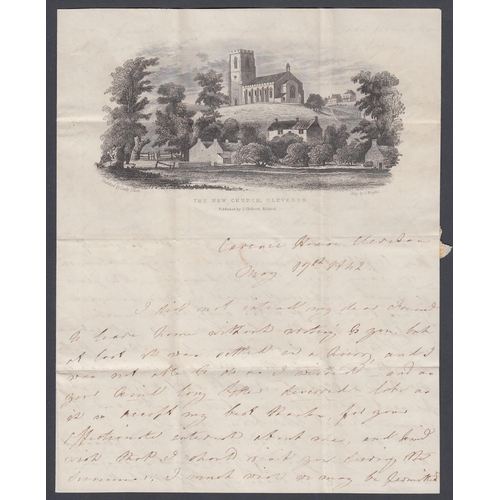 THE NEW CHURCH, CLEVEDON.
Clevedon
May 17th 1842
I did not intend my dear Friend
to leave home without writing to you, but
at last it was settled in a hurry, and I
was not able to do as I wished and as
your kind long letter deserved late as
it is accept my best thanks, for your
affectionate interest about me, and kind
wish that I should visit you during the
summer, I much wish we may be permitted